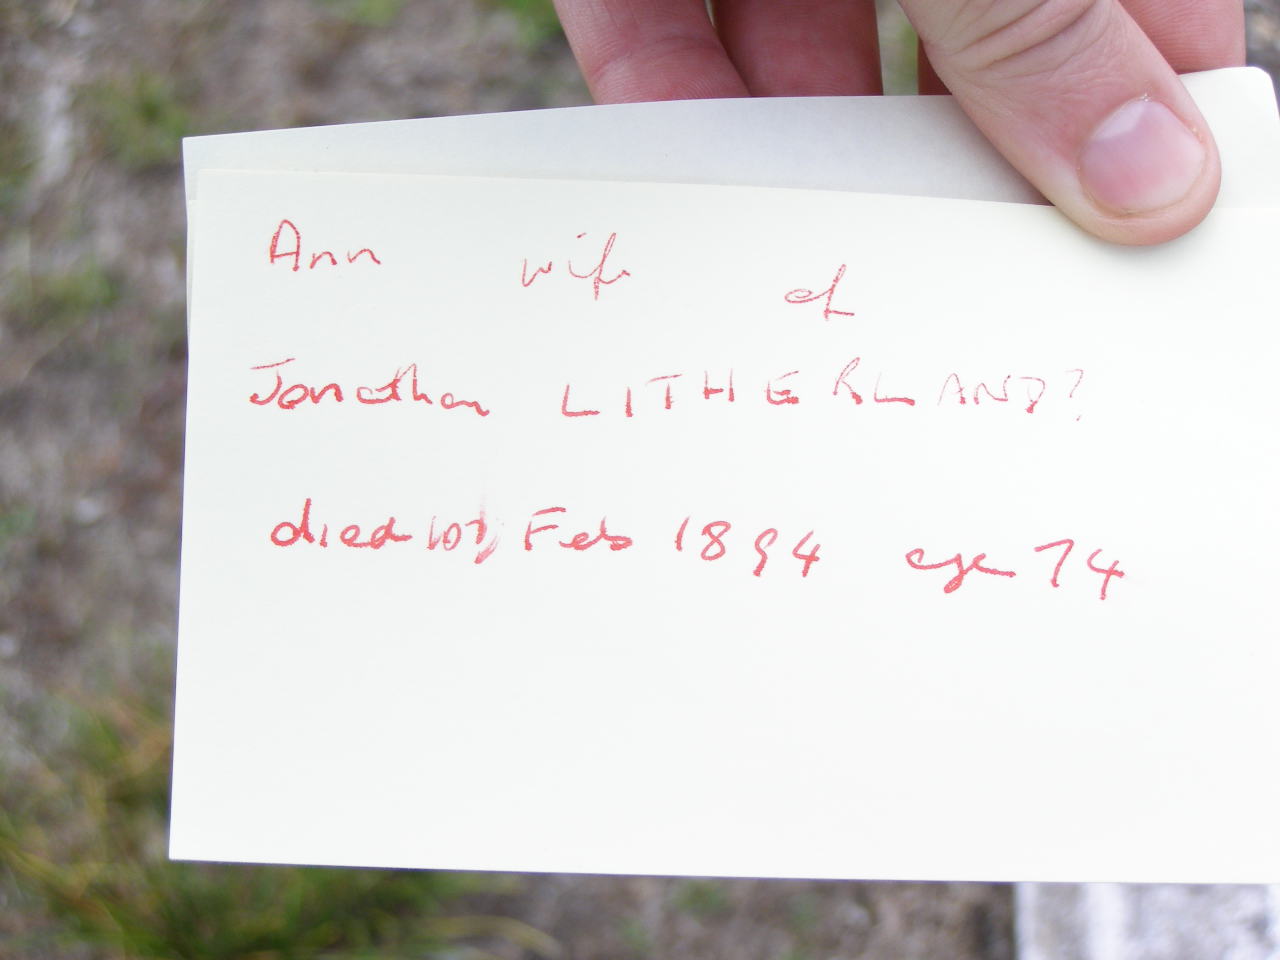 Ann wife of
Jonathan LITHERLAND?
died Feb 1894 age 74